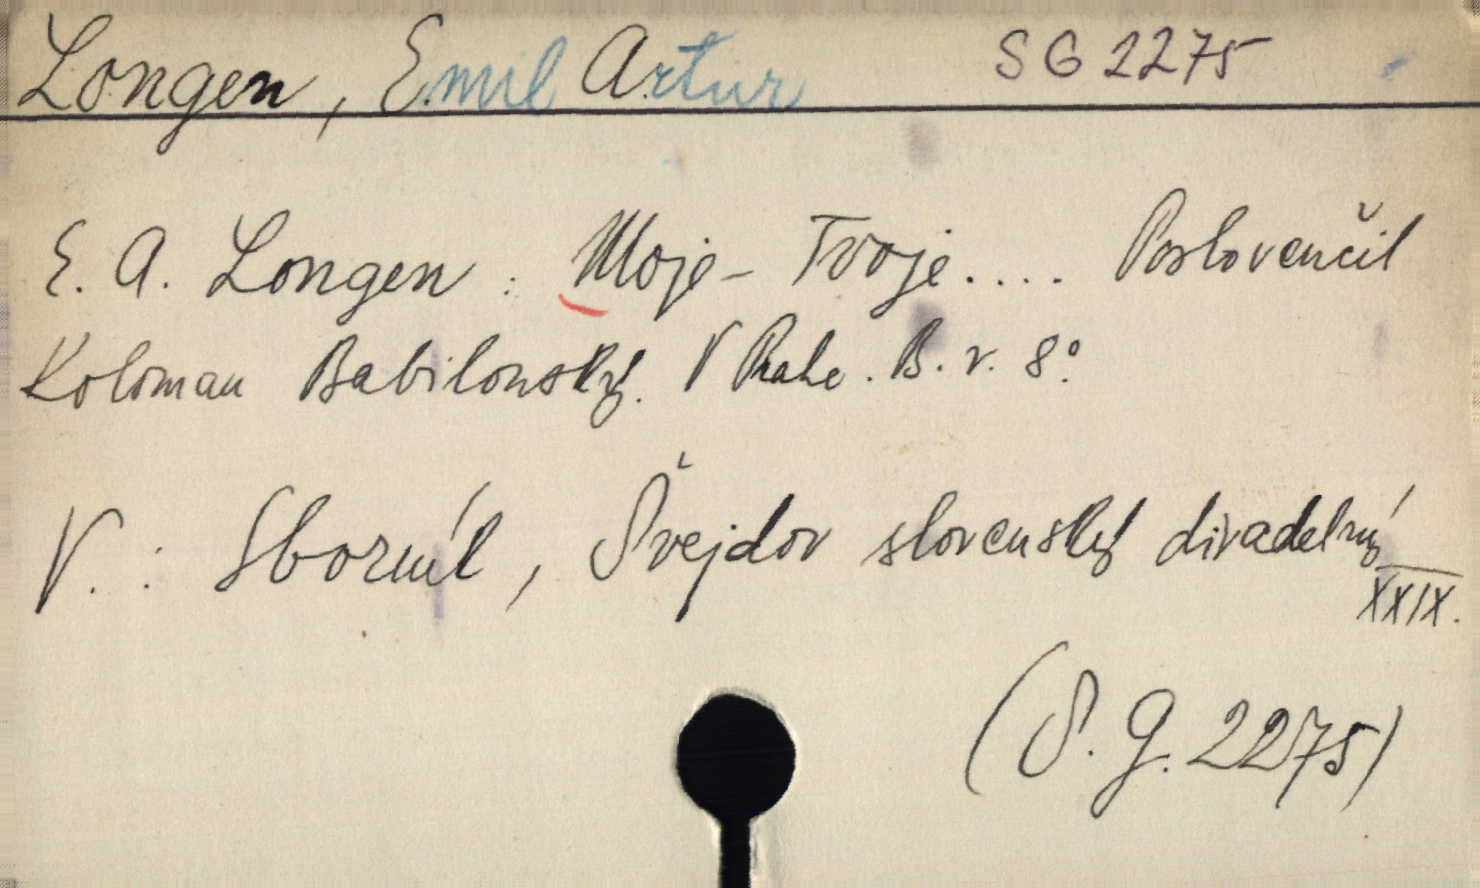 Longen, Emil Artur SG 2275
E. A. Longen : Moje - Tvoje.... Poslovenčil
Koloman Babilonský. V Prahe. B. r. 8°.
V. : Sborník, Švejdov slovenský divadelný
XXIX.
(S. G. 2275)